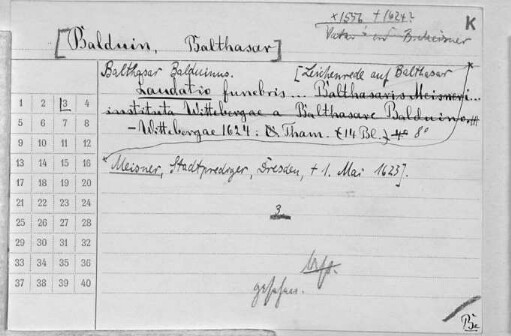 ×1556 † 1624?
K
[Balduin, Balthasar]
Balthasar Balduinus. [Leichenrede auf Balthasar
Laudatio funebris ... Balthasaris Meisneri ...
instituta Wittebergae a Balthasare Balduino ...
- Wittebergae 1624: Tham. {14 Bl.} 4° 8°
Meisner, Stadtprediger, Dresden, † 1. Mai 1623].
1 2 3 4
5 6 7 8
9 10 11 12
13 14 15 16
17 18 19 20
21 22 23 24
25 26 27 28
29 30 31 32
33 34 35 36
37 38 39 40
3
gesehen.